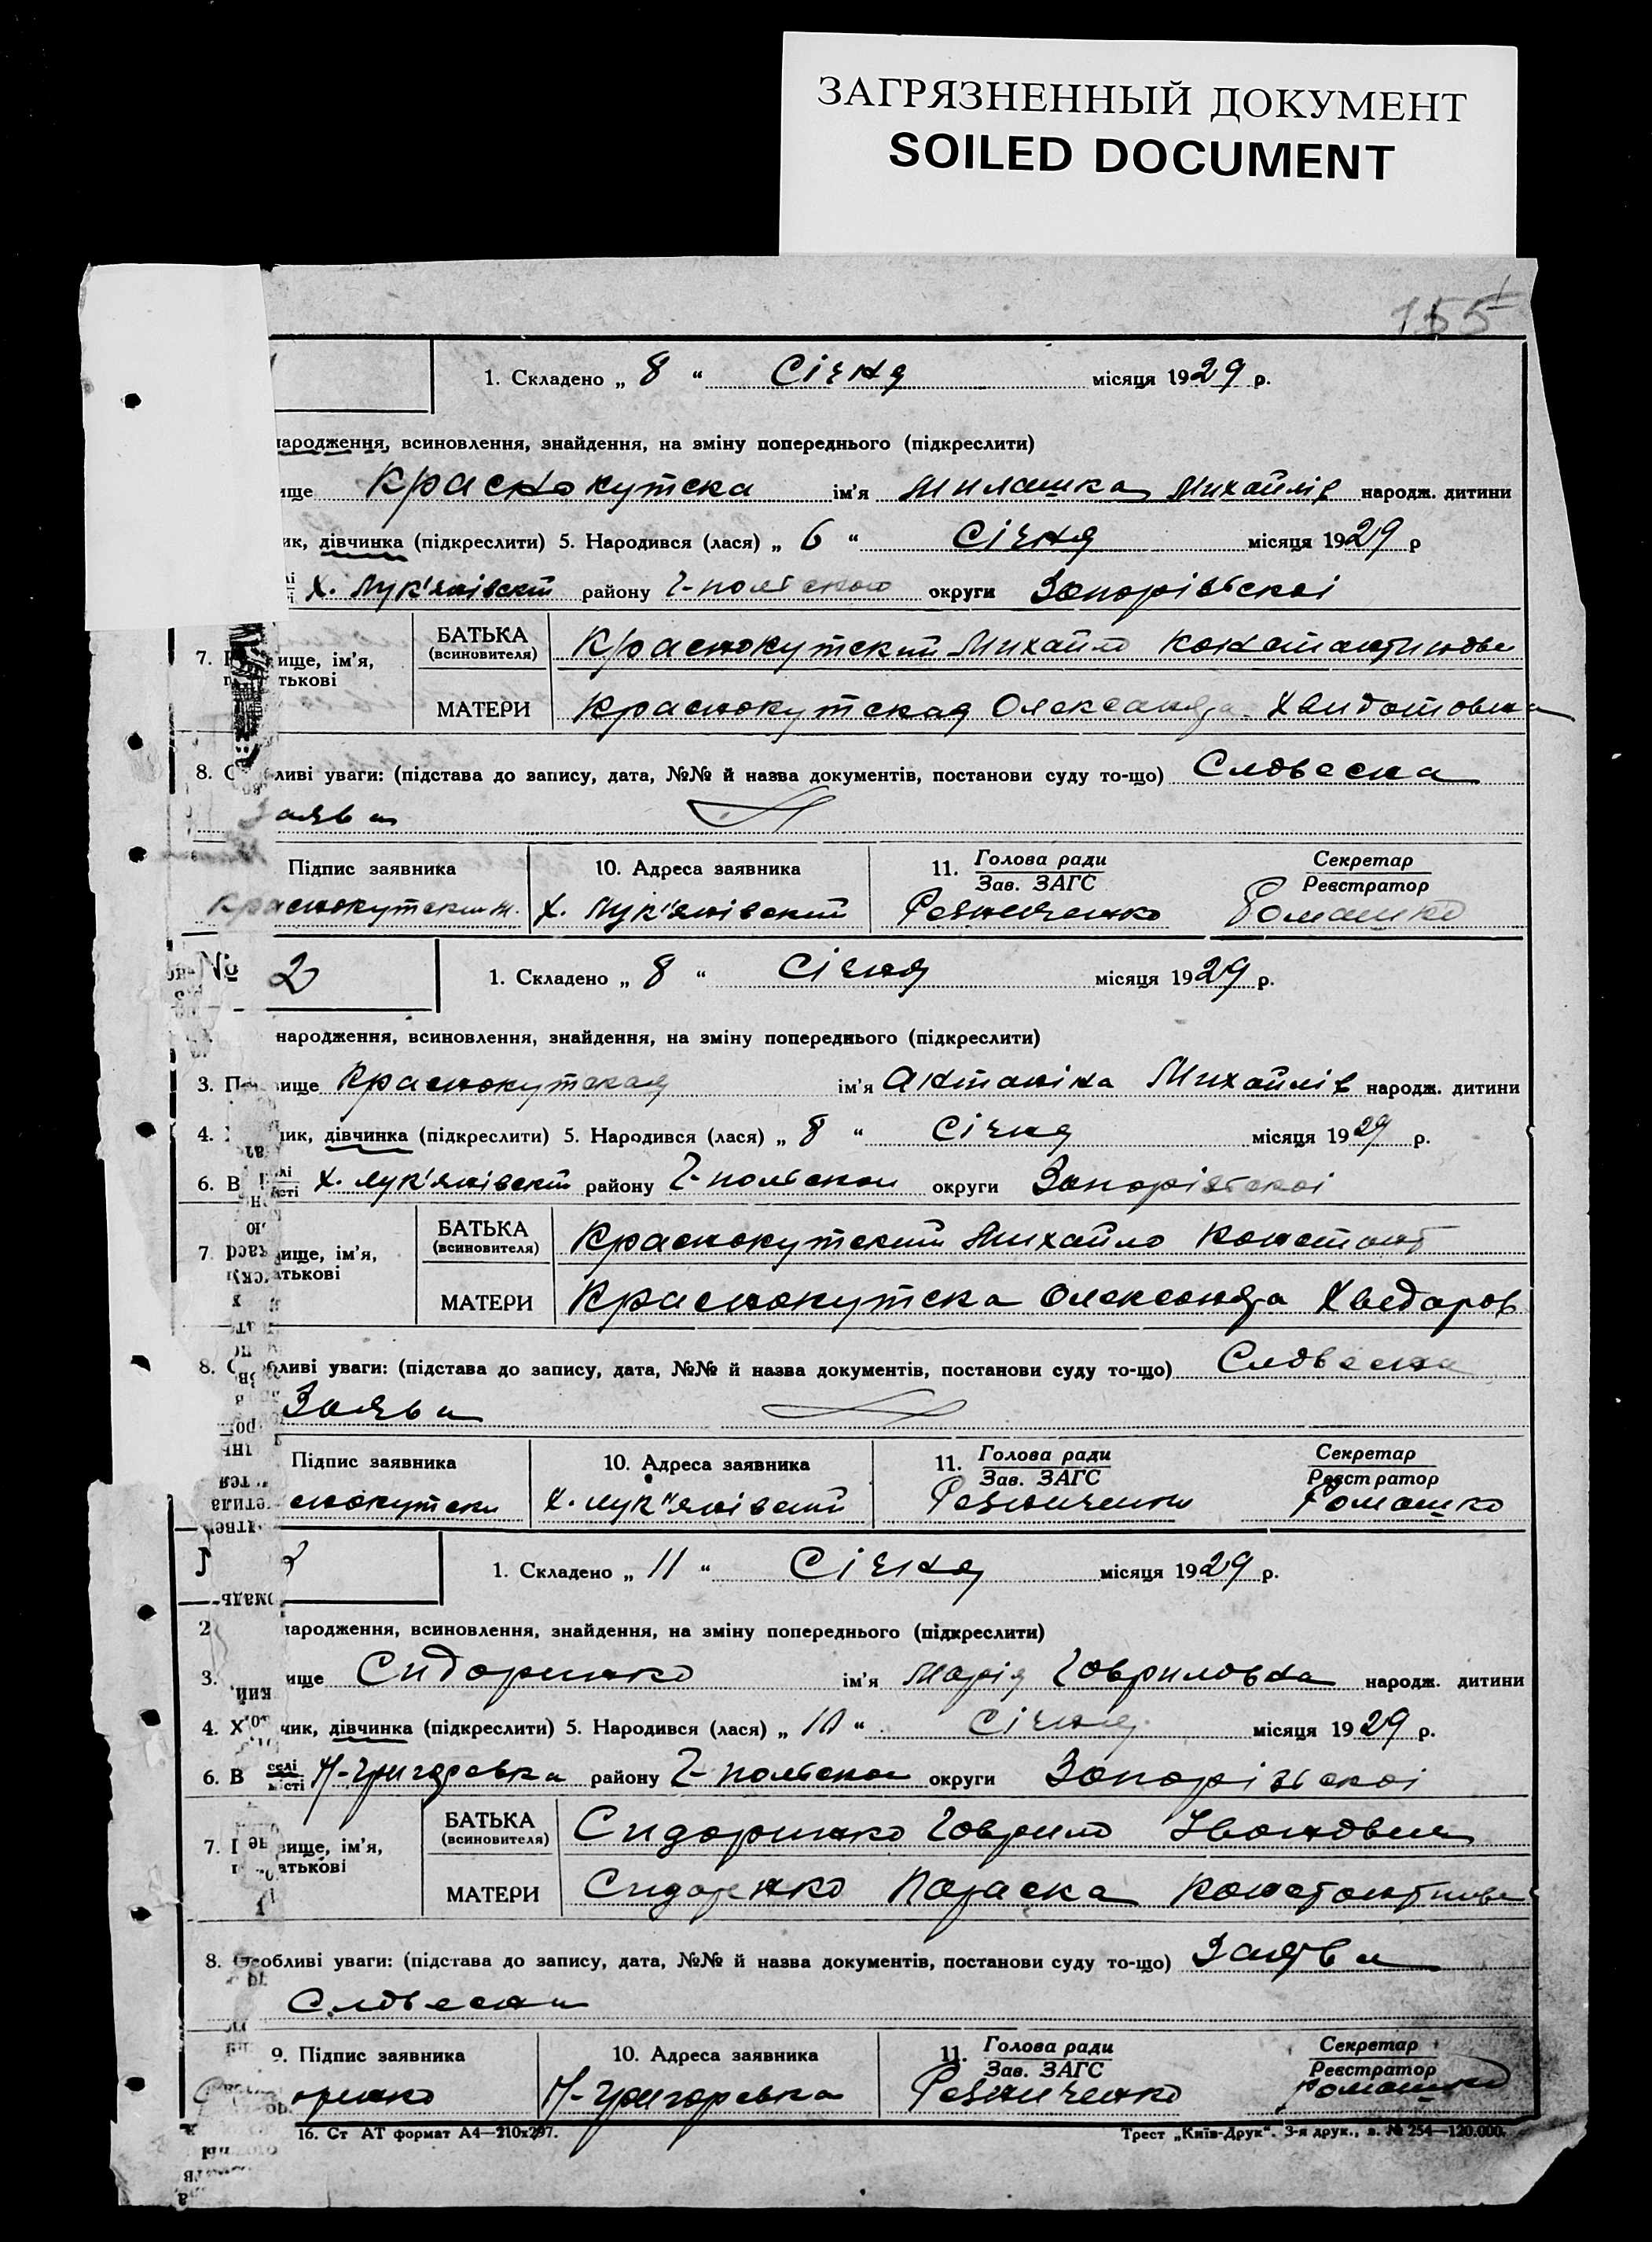 ЗАГРЯЗНЕННЫЙ ДОКУМЕНТ
SOILED DOCUMENT
155
1. Складено „ 8 “ Січня місяця 1929 р.
народження, всиновлення, знайдення, на зміну попереднього (підкреслити)
ище Краснокутска ім'я Милашка Михайлів народж. дитини
ик, дівчинка (підкреслити) 5. Народився (лася) „ 6 “ Січня місяця 1929 р
Х. Лук'янівский району Г-польского округи Запоріжскої
7. ище, ім'я, тькові
БАТЬКА (всиновителя) Краснокутский Михайло Константинови
МАТЕРИ Краснокутская Олександра
8. ливі уваги: (підстава до запису, дата, №№ й назва документів, постанови суду то-що) Словесна
Заява
Підпис заявника 10. Адреса заявника 11. Голова ради Секретар
Зав. ЗАГС Реєстратор
Краснокутский Х. Лук'янівский Резниченко Ромашко
№ 2 1. Складено „ 8 “ Січня місяця 1929 р.
народження, всиновлення, знайдення, на зміну попереднього (підкреслити)
3. П ище Краснокутская ім'я Антаніна Михайлів народж. дитини
4. чик, дівчинка (підкреслити) 5. Народився (лася) „ 8 “ Січня місяця 1929 р.
6. В Х. Лук'янівский району Г-польскои округи Запоріжскої
7 ище, ім'я, атькові
БАТЬКА (всиновителя) Краснокутский Михайло Констант
МАТЕРИ Краснокутска Олександра Хведоров
8. О бливі уваги: (підстава до запису, дата, №№ й назва документів, постанови суду то-що) Словесна
Заява
Підпис заявника 10. Адреса заявника 11. Голова ради Секретар
Зав. ЗАГС Реєстратор
снокутски Х. Лук'янівский Резниченко Ромашко
3 1. Складено „ 11 “ Січня місяця 1929 р.
2 народження, всиновлення, знайдення, на зміну попереднього (підкреслити)
3. ище Сидоринко ім'я Марія Говриловна народж. дитини
4. Х чик, дівчинка (підкреслити) 5. Народився (лася) „ 10 “ Січня місяця 1929 р.
6. В селі місті Н-Григоровка району Г-польскои округи Запоріжскої
7. вище, ім'я, атькові
БАТЬКА (всиновителя) Сидоринко Говрило Іванович
МАТЕРИ Сидоренко Параска Константинов
8. Особливі уваги: (підстава до запису, дата, №№ й назва документів, постанови суду то-що) Заява
Словесна
9. Підпис заявника 10. Адреса заявника 11. Голова ради Секретар
Зав. ЗАГС Реєстратор
оринко Н-Григоровка Резниченко Ромашко
16. Ст АТ формат А4—210х297. Трест „Київ-Друк“. 3-я друк., з. № 254—120.000.